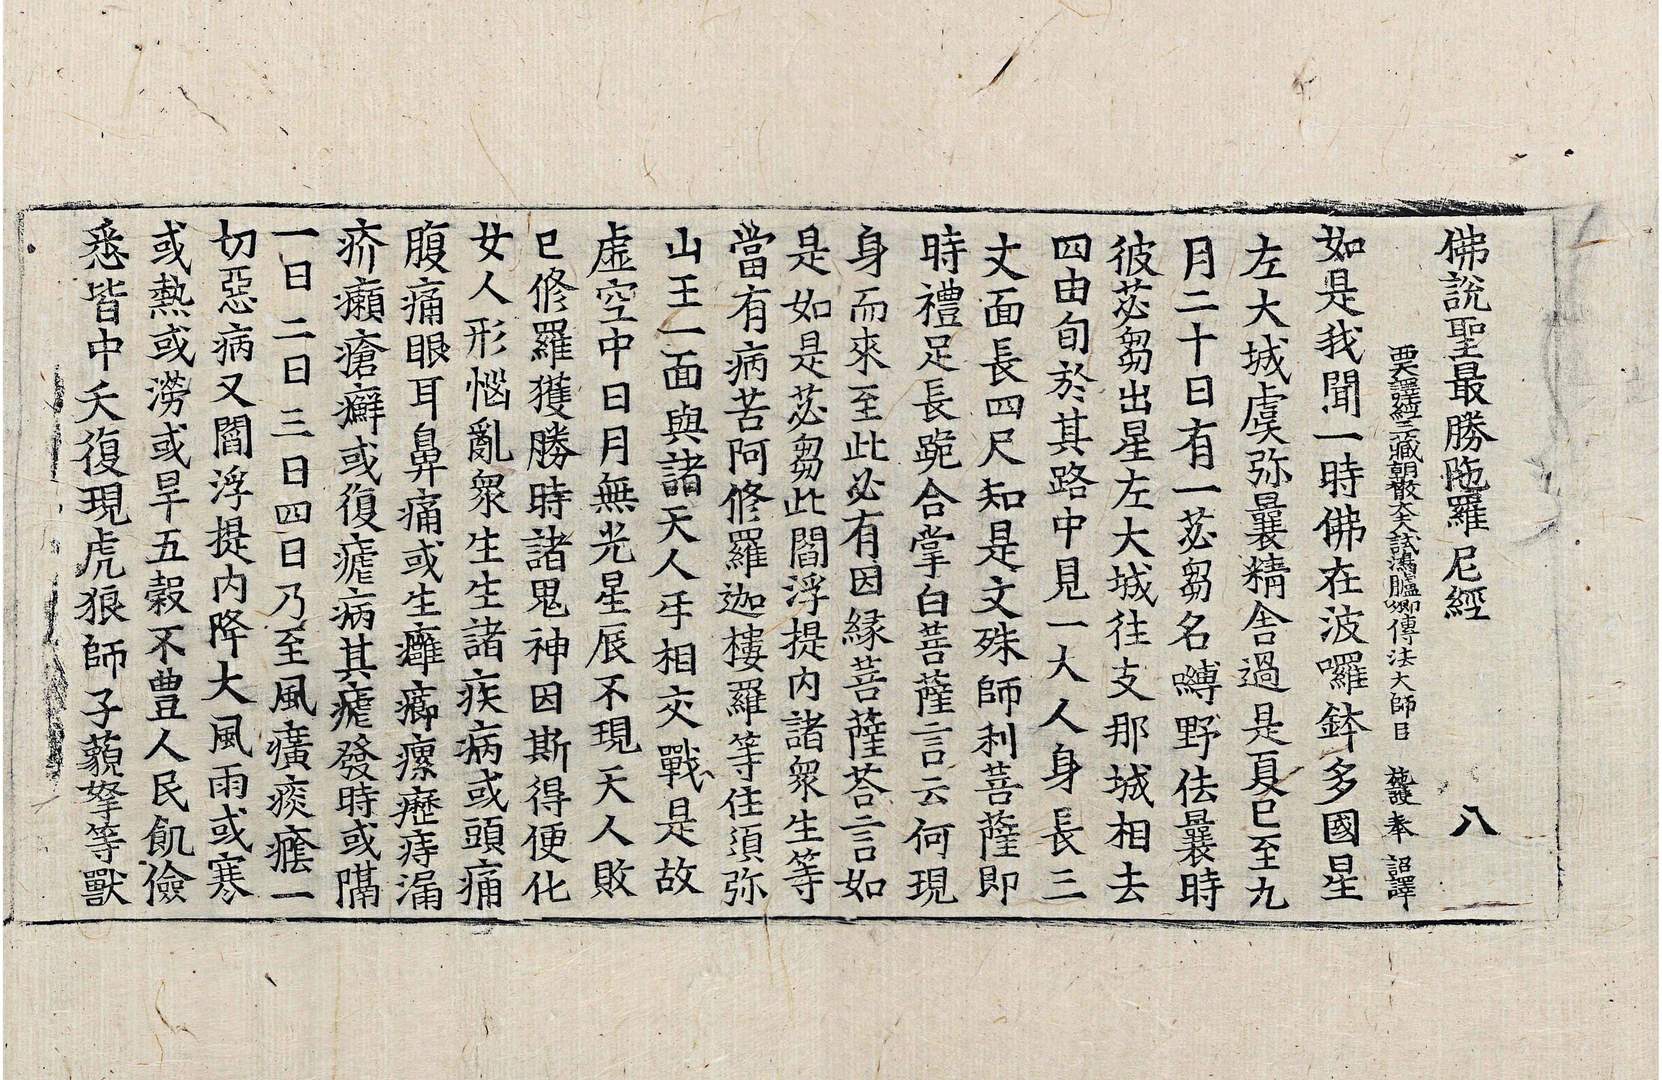 佛說聖最勝陁羅尼經 八
西天譯經三藏朝散大夫試鴻臚卿傳法大師臣 施護奉 詔譯
如是我聞一時佛在波囉鉢多國星
左大城虞弥曩精舍過是夏已至九
月二十日有一苾芻名嚩野佉曩時
彼苾芻出星左大城往支那城相去
四由旬於其路中見一大人身長三
丈面長四尺知是文殊師利菩薩即
時禮足長跪合掌白菩薩言云何現
身而來至此必有因緣菩薩荅言如
是如是苾芻此閻浮提內諸衆生等
當有病苦阿修羅迦樓羅等住須弥
山王一面與諸天人手相交戰是故
虛空中日月無光星辰不現天人敗
已修羅獲勝時諸鬼神因斯得便化
女人形惱亂衆生生諸疾病或頭痛
腹痛眼耳鼻痛或生癰癤瘰癧痔漏
疥癩瘡癬或復瘧病其瘧發時或隔
一日二日三日四日乃至風癀痰癊一
切惡病又閻浮提内降大風雨或寒
或熱或澇或旱五穀不豊人民飢儉
悉皆中夭復現虎狼師子藐拏等獸